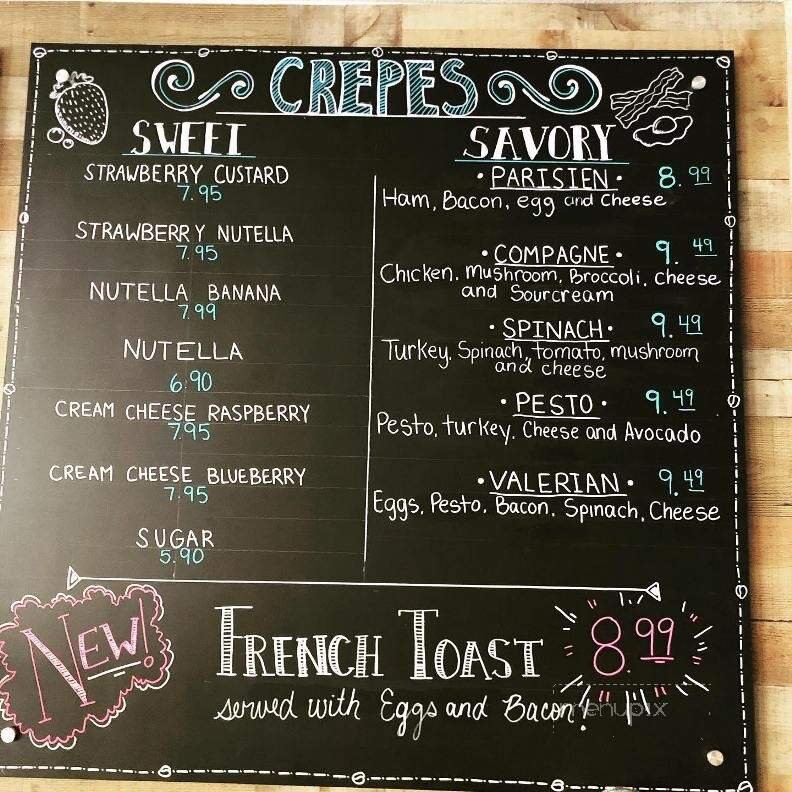 CREPES
SWEET
STRAWBERRY CUSTARD
7.95
STRAWBERRY NUTELLA
7.95
NUTELLA BANANA
7.99
NUTELLA
6.90
CREAM CHEESE RASPBERRY
7.95
CREAM CHEESE BLUEBERRY
7.95
SUGAR
5.90
SAVORY
• PARISIEN • 8.99
Ham, Bacon, egg and Cheese
• COMPAGNE • 9.49
Chicken, mushroom, Broccoli, cheese
and Sourcream
• SPINACH • 9.49
Turkey, Spinach, tomato, mushroom
and cheese
• PESTO • 9.49
Pesto, turkey, Cheese and Avocado
• VALERIAN • 9.49
Eggs, Pesto, Bacon, Spinach, Cheese
NEW!
FRENCH TOAST 8.99
served with Eggs and Bacon!
menupix